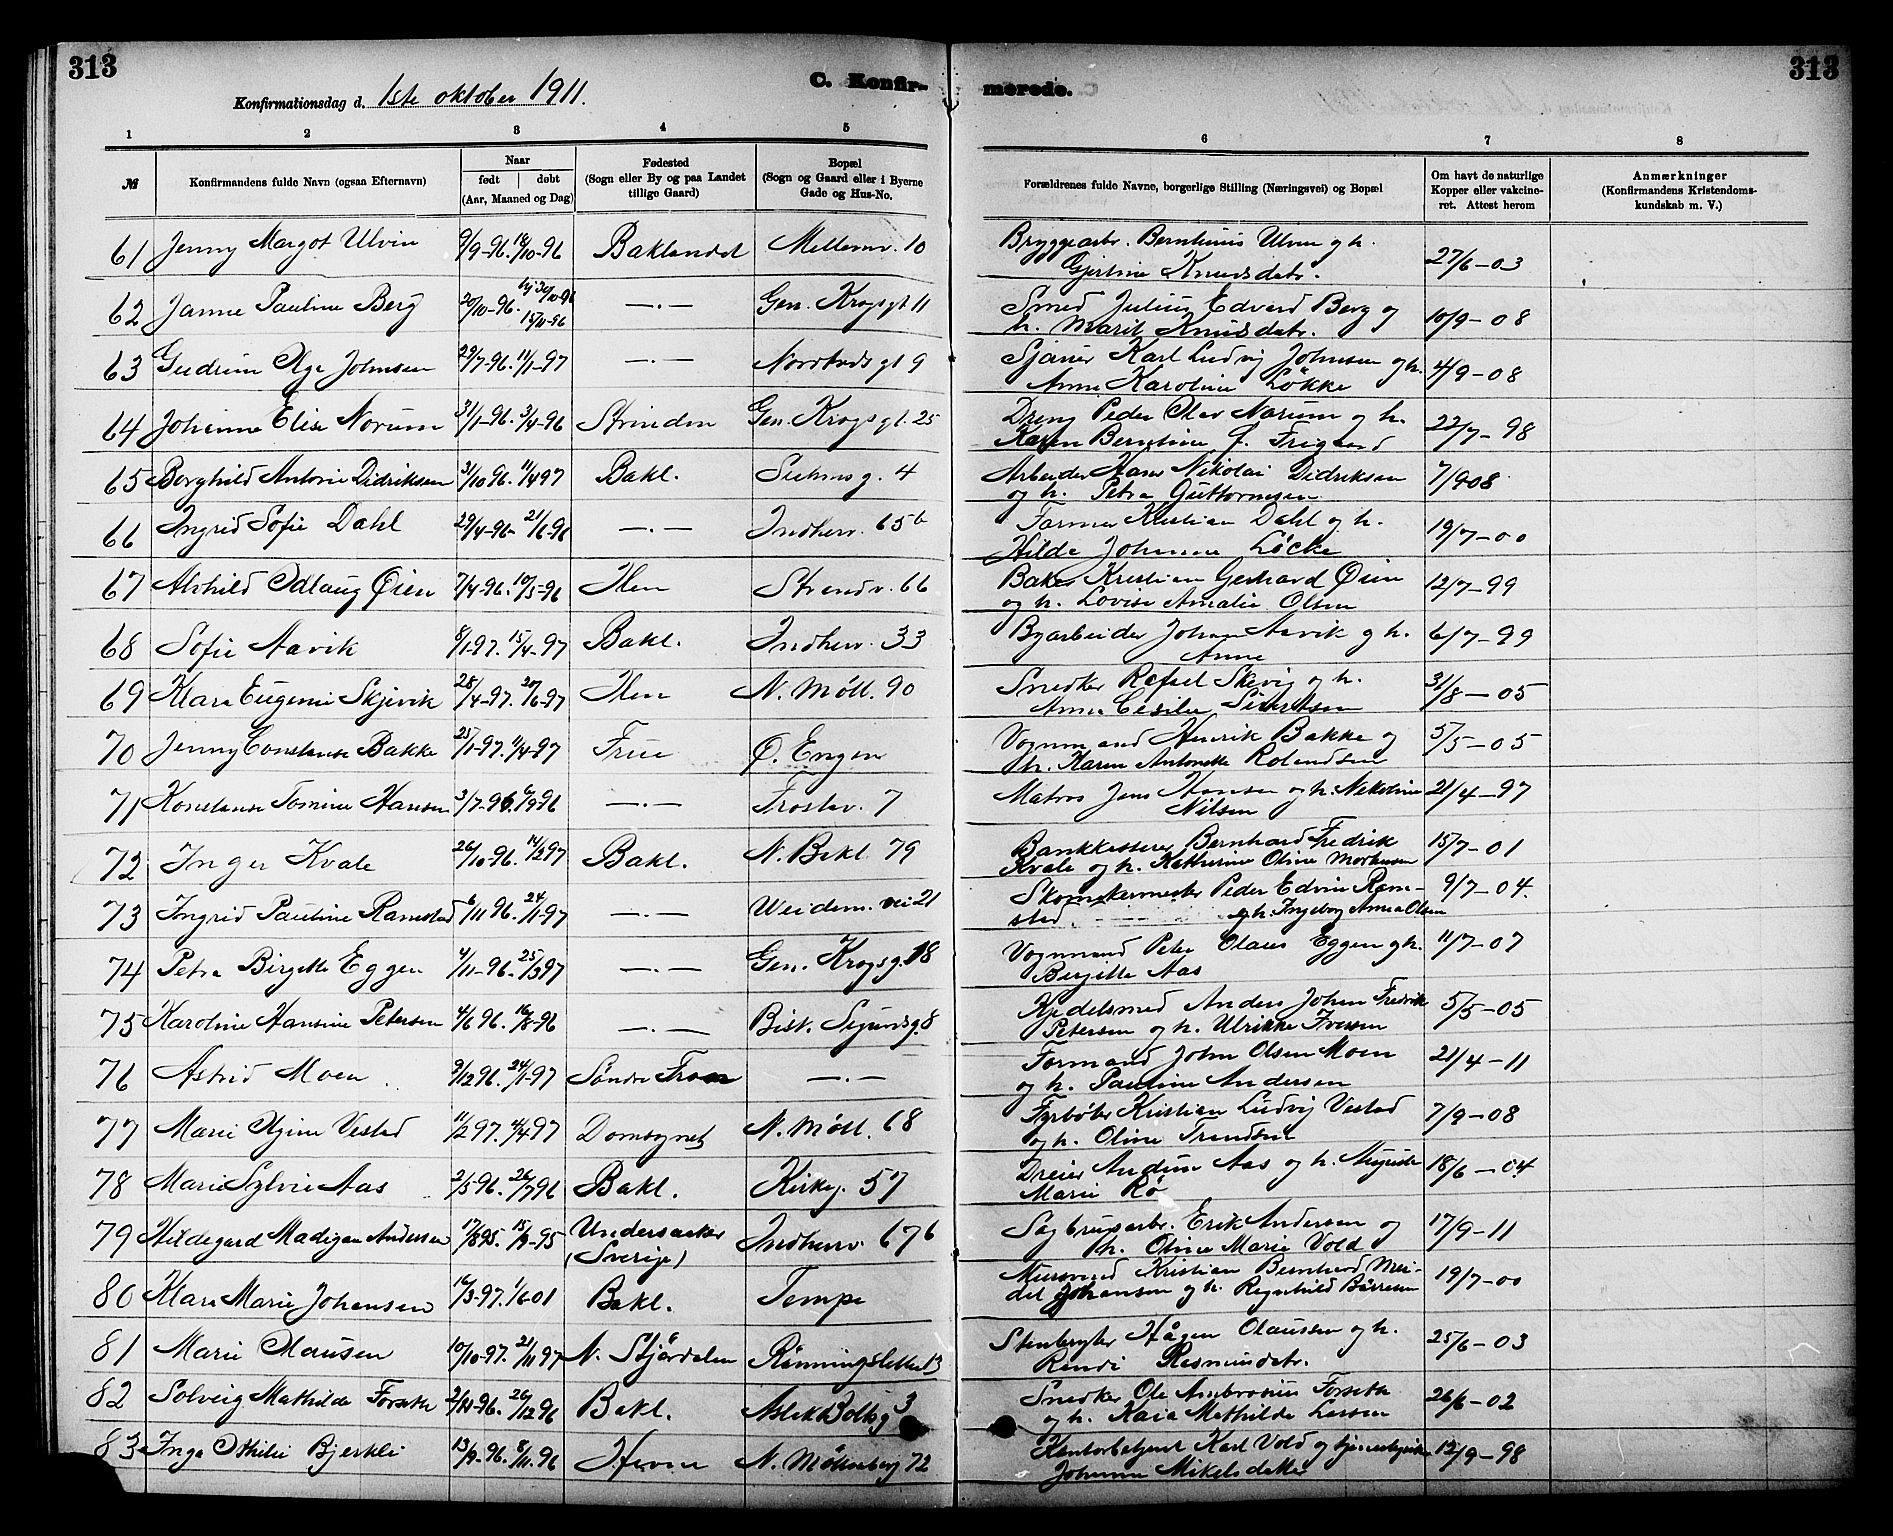 313
C. Konfir-
merede.
313
Konfirmationsdag d. 1ste oktober 1911.
1 2 3 4 5 6 7 8
№
Konfirmandens fulde Navn (ogsaa Efternavn)
Naar
født | døbt
(Aar, Maaned og Dag)
Fødested
(Sogn eller By og paa Landet
tillige Gaard)
Bopæl
(Sogn og Gaard eller i Byerne
Gade og Hus-No.
Forældrenes fulde Navne, borgerlige Stilling (Næringsvei) og Bopæl
Om havt de naturlige
Kopper eller vakcine-
ret. Attest herom
Anmærkninger
(Konfirmandens Kristendoms-
kundskab m. V.)
61 Jenny Margot Ulvin 9/9-96. 18/10-96 Baklandet Mellemv. 10 Bryggearb. Bernhinus Ulvin og h. 27/6-03
Gjertine Knudsdatr.
62 Janne Pauline Berg 20/10-96. 15/11-96 —.— Gen. Krogsgt 11 Smed Julius Edvard Berg og 10/9-08
h. Marit Knudsdatr.
63 Gudrun Olga Johnsen 29/7-96. 11/1-97 —.— Nordtvedsgt 9 Sjauer Karl Ludvig Johnsen og h. 4/9-08
Anna Karoline Løkke
64 Johanne Elise Norum 31/1-96. 3/4-96 Strinden Gen. Krogsgt. 25 Dreng Peder Olav Norum og h. 22/7-98
Karen Berntine f. Frigaard
65 Borghild Antonie Didriksen 31/10 96. 11/4 97 Bakl. Suhmsg. 4 Arbeider Hans Nikolai Didriksen 7/9 08
og h. Petra Guttormsen
66 Ingrid Sofie Dahl 29/4-96. 21/6-96 —.— Indherv. 65b Former Kristian Dahl og h. 19/7-00
Hilda Johanna Løcke
67 Alshild Odlaug Øien 7/4-96. 10/5-96 Ilen Strandv. 66 Baker Kristian Gerhard Øien 12/7-99
og h. Lovise Amalie Olsen
68 Sofie Aavik 8/1-97. 15/4-97 Bakl. Indherv. 33 Byarbeider Johan Aavik og h. 6/7-99
Anna
69 Klara Eugenie Skjevik 28/4-97. 20/6-97 Ilen N. Möll. 90 Snedker Rafael Skevig og h. 31/8-05
Anna Cesilie Sivertsen
70 Jenny Constanse Bakke 25/1-97. 11/4-97 Frue Ø. Engen Vognmand Henrik Bakke og 5/5-05
h. Karen Antonette Rolandsen
71 Konstanse Tomine Hansen 3/7-96. 6/9 96 —.— Frostav. 7 Matros Jens Hansen og h. Nikoline 21/4-97
Nilsen
72 Inger Kvale 26/10-96. 14/2 97 Bakl. N. Bakl. 79 Bankkasserer Bernhard Fredrik 15/7-01
Kvale og h. Katherine Oline Morkusen
73 Ingrid Pauline Ramstad 6/11 96. 24/1-97 —.— Weidem. vei 21 Skomakermester Peder Edvin Ram- 9/7-04.
stad og h. Ingeborg Anna Olsen
74 Petra Birgitte Eggen 4/11-96. 25/3 97 —.— Gen. Krogsg. 18 Vognmand Peter Olaus Eggen og h. 11/7-07
Bergitte Aas
75 Karoline Hansine Petersen 4/6 96. 16/8-96 —.— Bisk. Sigurdsg. 8 Kjedelsmed Anders Johan Fredrik 5/5-05
Petersen og h. Ulrikke Iversen
76 Astrid Moen 9/12 96. 24/1-97 Søndre Fron —.— Formand John Olsen Moen 21/4-11
og h. Pauline Andersen
77 Marie Ovine Vestad 11/2 97. 4/4 97 Domsognet N. Möll. 68 Fyrbøter Kristian Ludvig Vestad 7/9-08
og h. Oline Trondsen
78 Marie Sylvie Aas 2/5-96. 26/7 96 Bakl. Kirkeg. 57 Dreier Andreas Aas og h. Auguste 18/6-04
Marie Rø
79 Hildegard Madigan Andersen 17/8 95. 15/9-95 Undersaaker Indherv. 67b Sagbrugsarb. Erik Andersen og 17/9-11
(Sverige) h. Oline Marie Vold
80 Klara Marie Johansen 16/3-97. 1/6 01 Bakl. Tempe Mursvend Kristian Bernhard Mei- 19/7-00
del Johansen og h. Regnhild Börresen
81 Marie Olausen 10/10-97. 21/11 97 N. Stjørdalen Rönningsletta 13 Stenbryter Hågen Olaussen og h. 25/6-03
Randi Rasmusdatr.
82 Solveig Mathilde Forseth 2/11-96. 26/12 96 Bakl. Aslak Boltsg 3 Snedker Ole Ambrosius Forseth 26/6-02
og h. Kaia Mathilde Larsen
83 Inga Othilie Bjerkli 13/9-96. 8/11-96 Heven N. Möllenberg 72 Kontorbetjent Karl Vold og 12/9-98
Johanna Mikelsdatter